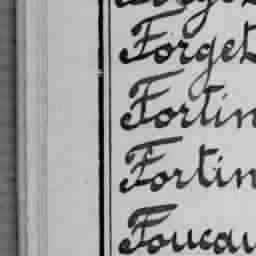 Forget
Fortin
Fortin
Foucau